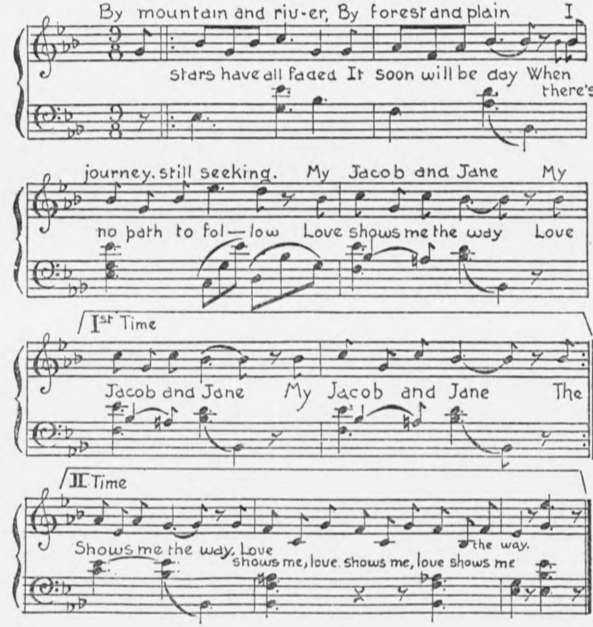 By mountain and riv-er, By forest and plain I
stars have all faded It soon will be day When
there's
journey. still seeking. My Jacob and Jane My
no path to fol—low Love shows me the way Love
Ist Time
Jacob and Jane My Jacob and Jane The
II Time
Shows me the way. Love the way.
shows me, love. shows me, love shows me